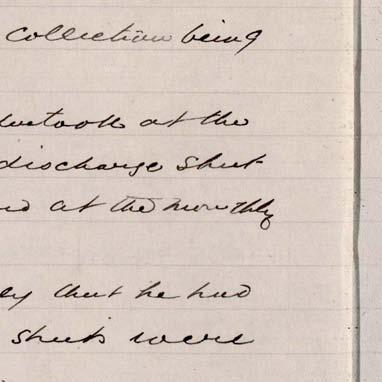 collection being
at the
discharge sheet
at the monthly
that he had
sheets were